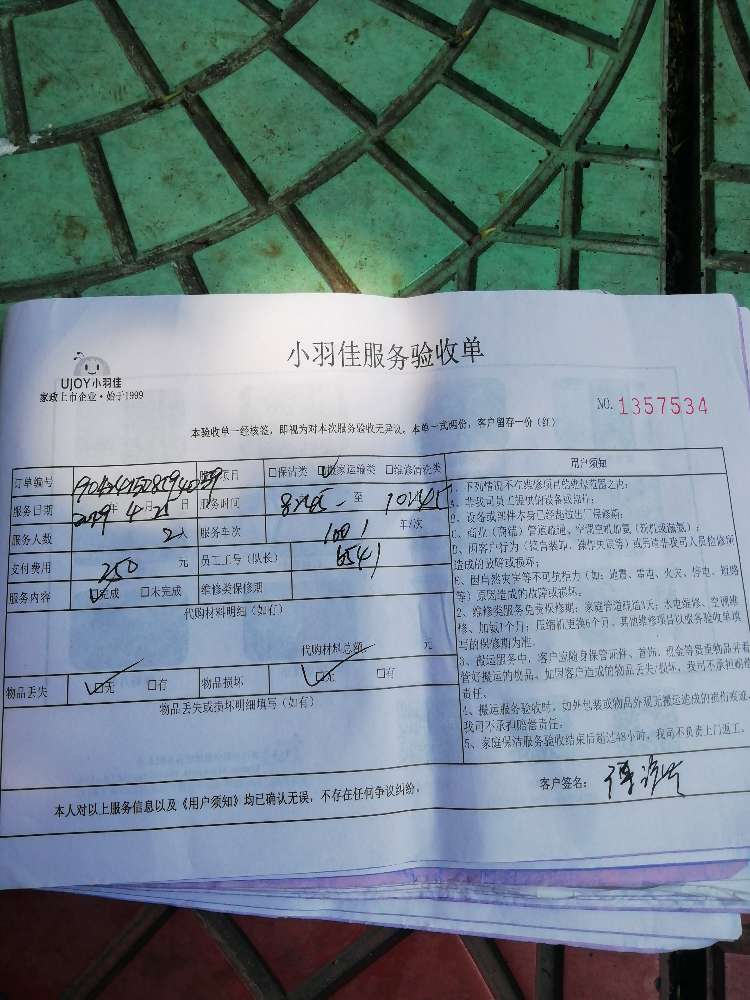 小羽佳服务验收单
UJOY小羽佳
家政上市企业·始于1999
NO. 1357534
本验收单一经核签，即视为对本次服务验收无异议。本单一式两份，客户留存一份（红）
订单编号 项目 □保洁类 □搬家运输类 □维修清洗类
服务日期 2019 年 4 月 25 日 服务时间 8:45 至 10:45
服务人数 2 人 服务车次 车/次
支付费用 250 元 员工工号（队长） 6541
服务内容 □完成 □未完成 维修类保修期
代购材料明细（如有）
代购材料总额 元
物品丢失 □无 □有 物品损坏 □无 □有
物品丢失或损坏明细填写（如有）
用户须知
1、下列情况不在整修项目的免费保修范围之内：
A、非我司员工提供的设备或部件；
B、设备或部件本身已经超过出厂保修期；
造成的故障或损坏；
E、因自然灾害等不可抗拒力（如：地震、雷电、火灾、停电、短路
等）原因造成的故障或损坏。
2、维修类服务免费保修期：家庭管道疏通3天；水电维修、空调维
修、加氨1个月；压缩机更换6个月，其他维修项目以服务验收单填
写的保修期为准。
3、搬运服务中，客户应随身保管证件、首饰、现金等贵重物品并看
管好搬运的物品，如因客户造成的物品丢失/损坏，我司不承担赔偿
责任。
4、搬运服务验收时，如外包装或物品外观无搬运造成的损伤痕迹，
我司不承担赔偿责任。
5、家庭保洁服务验收结束后超过48小时，我司不负责上门返工。
本人对以上服务信息以及《用户须知》均已确认无误，不存在任何争议纠纷。
客户签名：